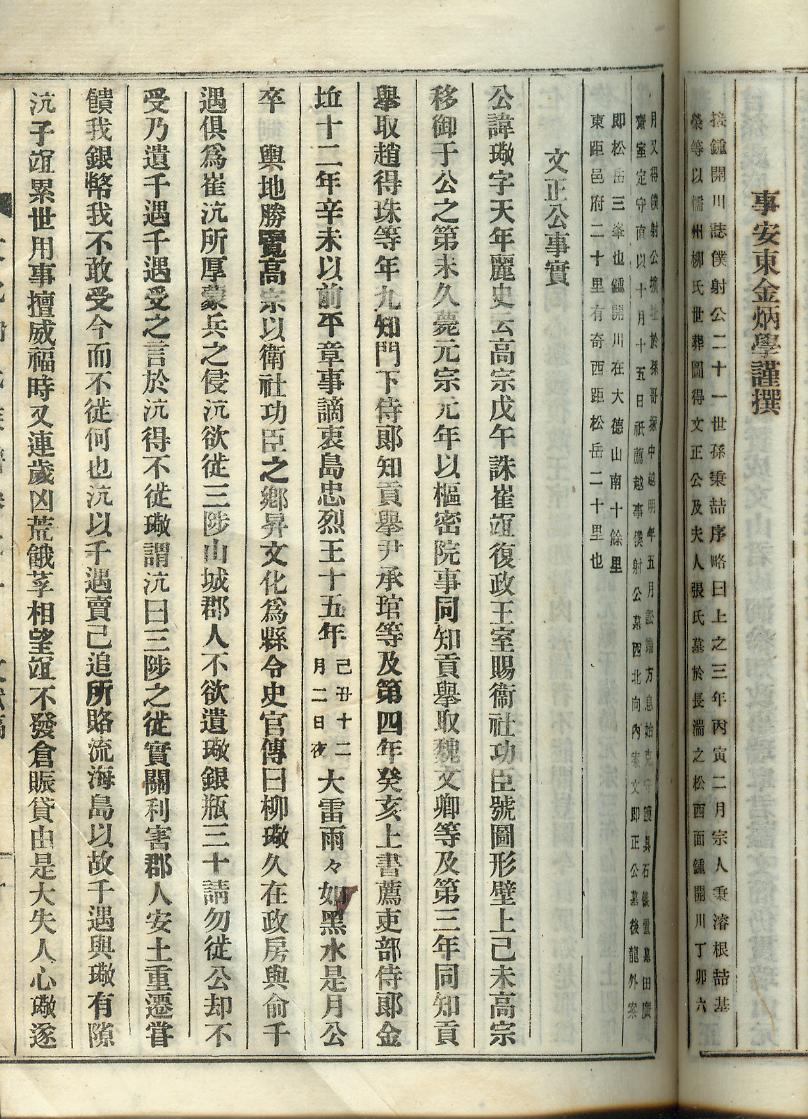 事安東金炳學謹撰
按鍾開川誌僕射公二十一世孫秉喆序略曰上之三年丙寅二月宗人秉溶根喆基
榮等以儒州柳氏世葬圖得文正公及夫人張氏墓於長湍之松西面鍾開川丁卯六
月又得僕射公壙
以十月十五日祇薦越事僕射公墓西北向內案文卽正公墓後龍外案
卽松岳三峯也鍾開川在大德山南十餘里
東距邑府二十里有奇西距松岳二十里也
文正公事實
公諱璥字天年麗史云高宗戊午誅崔竩復政王室賜衞社功臣號圖形壁上己未高宗
移御于公之第未久薨元宗元年以樞密院事同知貢擧取魏文卿等及第三年同知貢
擧取趙得珠等年九知門下侍郞知貢擧尹承琯等及第四年癸亥上書薦吏部侍郞金
坵十二年辛未以前平章事謫哀島忠烈王十五年己丑十二月二日夜大雷雨々如黑水是月公
卒 輿地勝覽高宗以衛社功臣之鄕昇文化爲縣令史官傳曰柳璥久在政房與俞千
遇俱爲崔沆所厚蒙兵之侵沆欲徙三陟山城郡人不欲遺璥銀瓶三十請勿徙公却不
受乃遺千遇千遇受之言於沆得不徙璥謂沆曰三陟之徙實關利害郡人安土重遷嘗
饋我銀幣我不敢受今而不徙何也沆以千遇賣己追所賂流海島以故千遇與璥有隙
沆子竩累世用事擅威福時又連歲凶荒餓莩相望竩不發倉賑貸由是大失人心璥遂